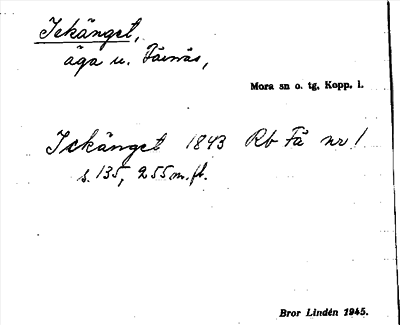 Ickänget,
äga u. Färnäs,
Mora sn o. tg, Kopp. l.
Ickänget 1843 Rb Fä nr 1
s. 135, 255 m.fl.
Bror Lindén 1945.